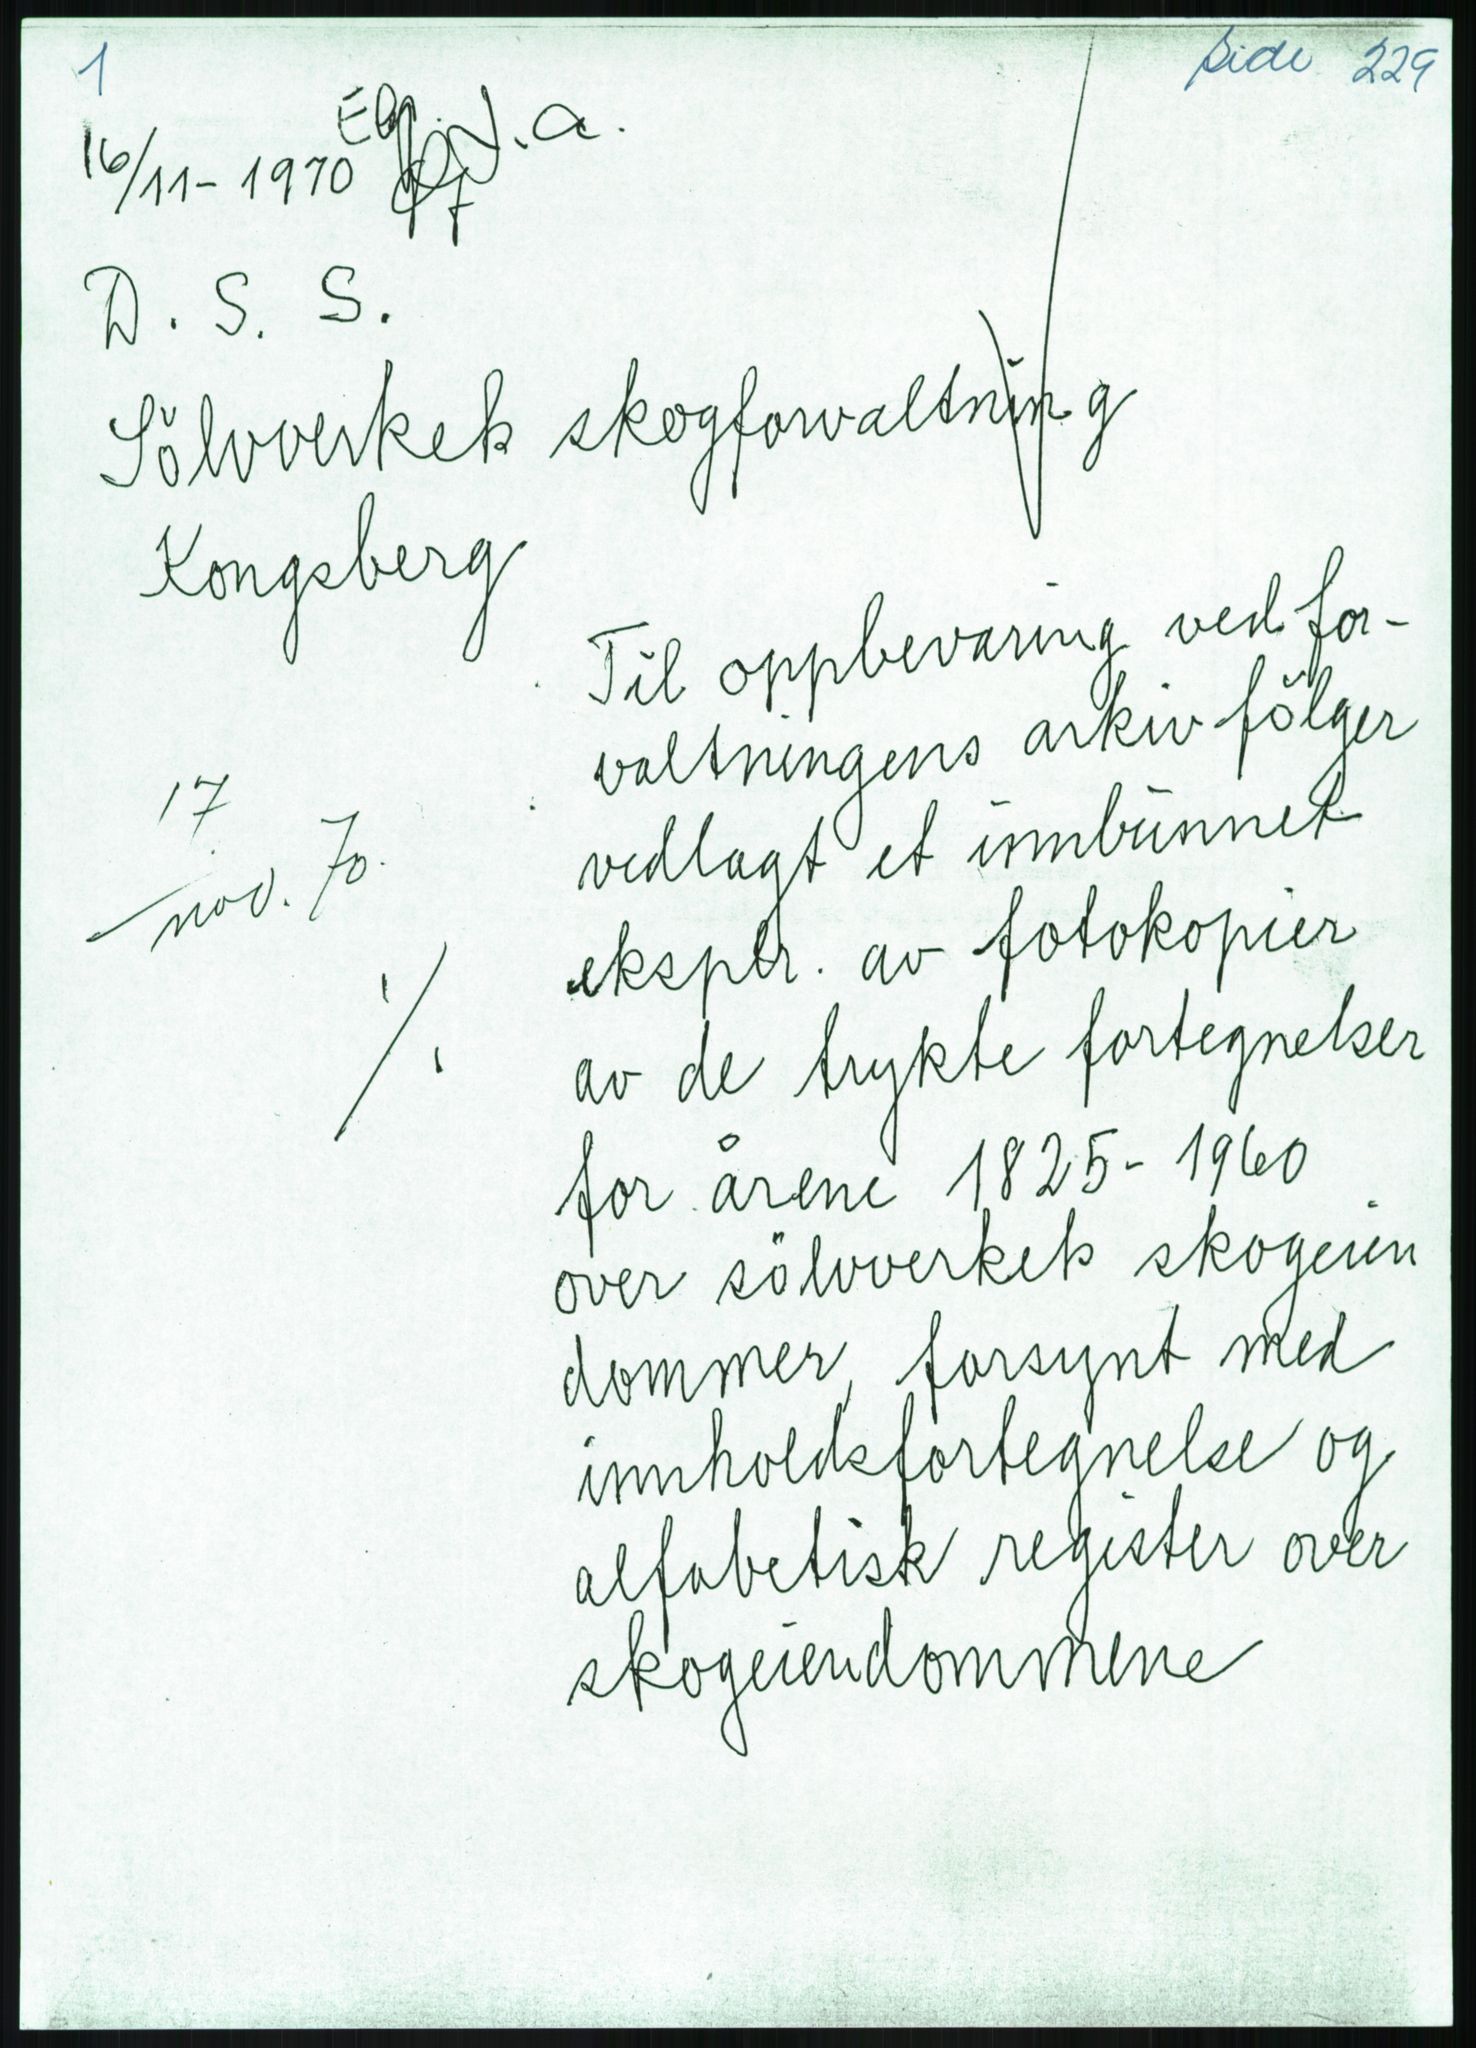 1
Side 229
16/11-1970
D. S. S.
Sölvverkets skogforvaltning
Kongsberg
Til oppbevaring ved for-
valtningens arkiv följer
vedlagt et innbunnet
eksplr. av fotokopier
av de trykte fortegnelser
for årene 1825-1960
over sölvverkets skogeien
dommer, forsynt med
innholdsfortegnelse og
alfabetisk register over
skogeiendommene
17
nov. 70.